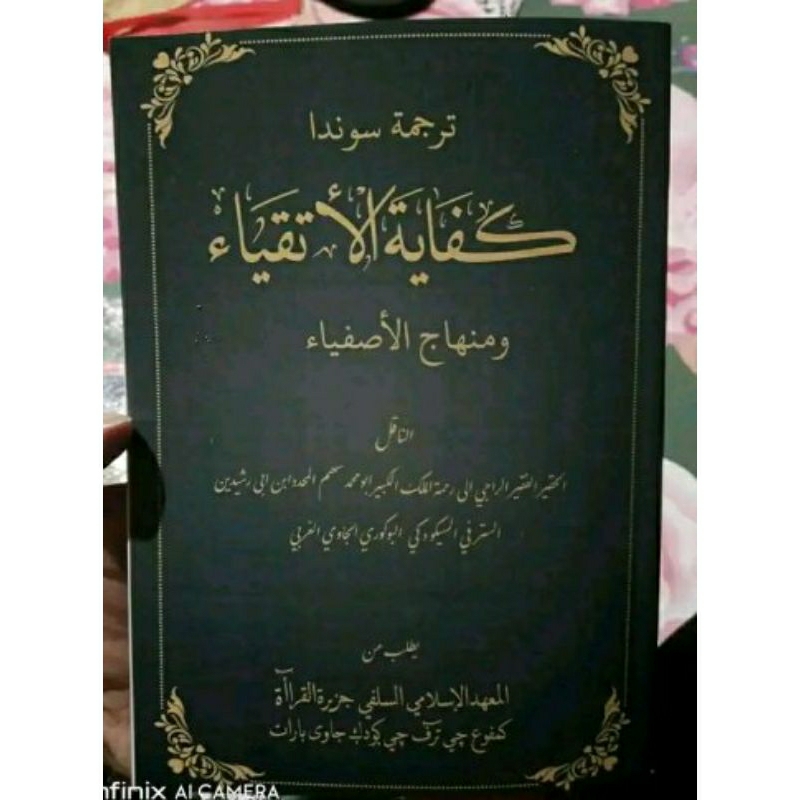 ترجمة سوندا
كفاية الأتقياء
ومنهاج الأصفياء
الناقل
الحقير الفقير الراجي إلى رحمة الملك الكبير ابو محمد سهم المحدد ابن ابي رشيدين
في البوكوري الجاوي الغربي
يطلب من
المعهد الإسلامي السلفي جزيرة القراأة
جاوى بارات
nfinix AI CAMERA